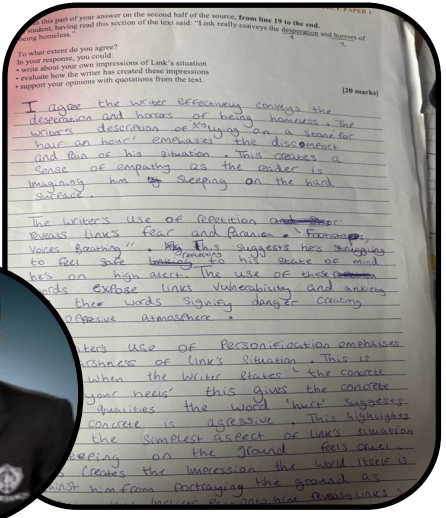 PAPER 1
this part of your answer on the second half of the source, from line 19 to the end.
student, having read this section of the text said: "Link really conveys the desperation and horrors of
being homeless."
To what extent do you agree?
In your response, you could:
• write about your own impressions of Link's situation
• evaluate how the writer has created these impressions
• support your opinions with quotations from the text.
[20 marks]
I agree the writer effectively conveys the
desperation and horrors of being homeless. The
writer's description of lying on a stone for
half an hour' emphasies the discomfort
and pain of his situation. This creates a
sense of empathy as the reader is
imagining him sleeping on the hard
surface.
The writer's use of repetition
reveals Link's fear and paranioa. "Footsteps,
voices Breathing". This suggests he's struggling
to feel safe to his state of mind
he's on high alert. The use of these
words expose Links vulnerability and anxiety
these words signify danger creating
atmosphere.
use of Personification emphasises
of Link's situation. This is
When the writer states 'the concrete
your heels' this gives the concrete
qualities the word 'hurt' suggests
concrete is agressive. This highlights
the simplest aspect of Link's situation
on the ground feels cruel.
creates the impression the world itself is
him from portraying the ground as